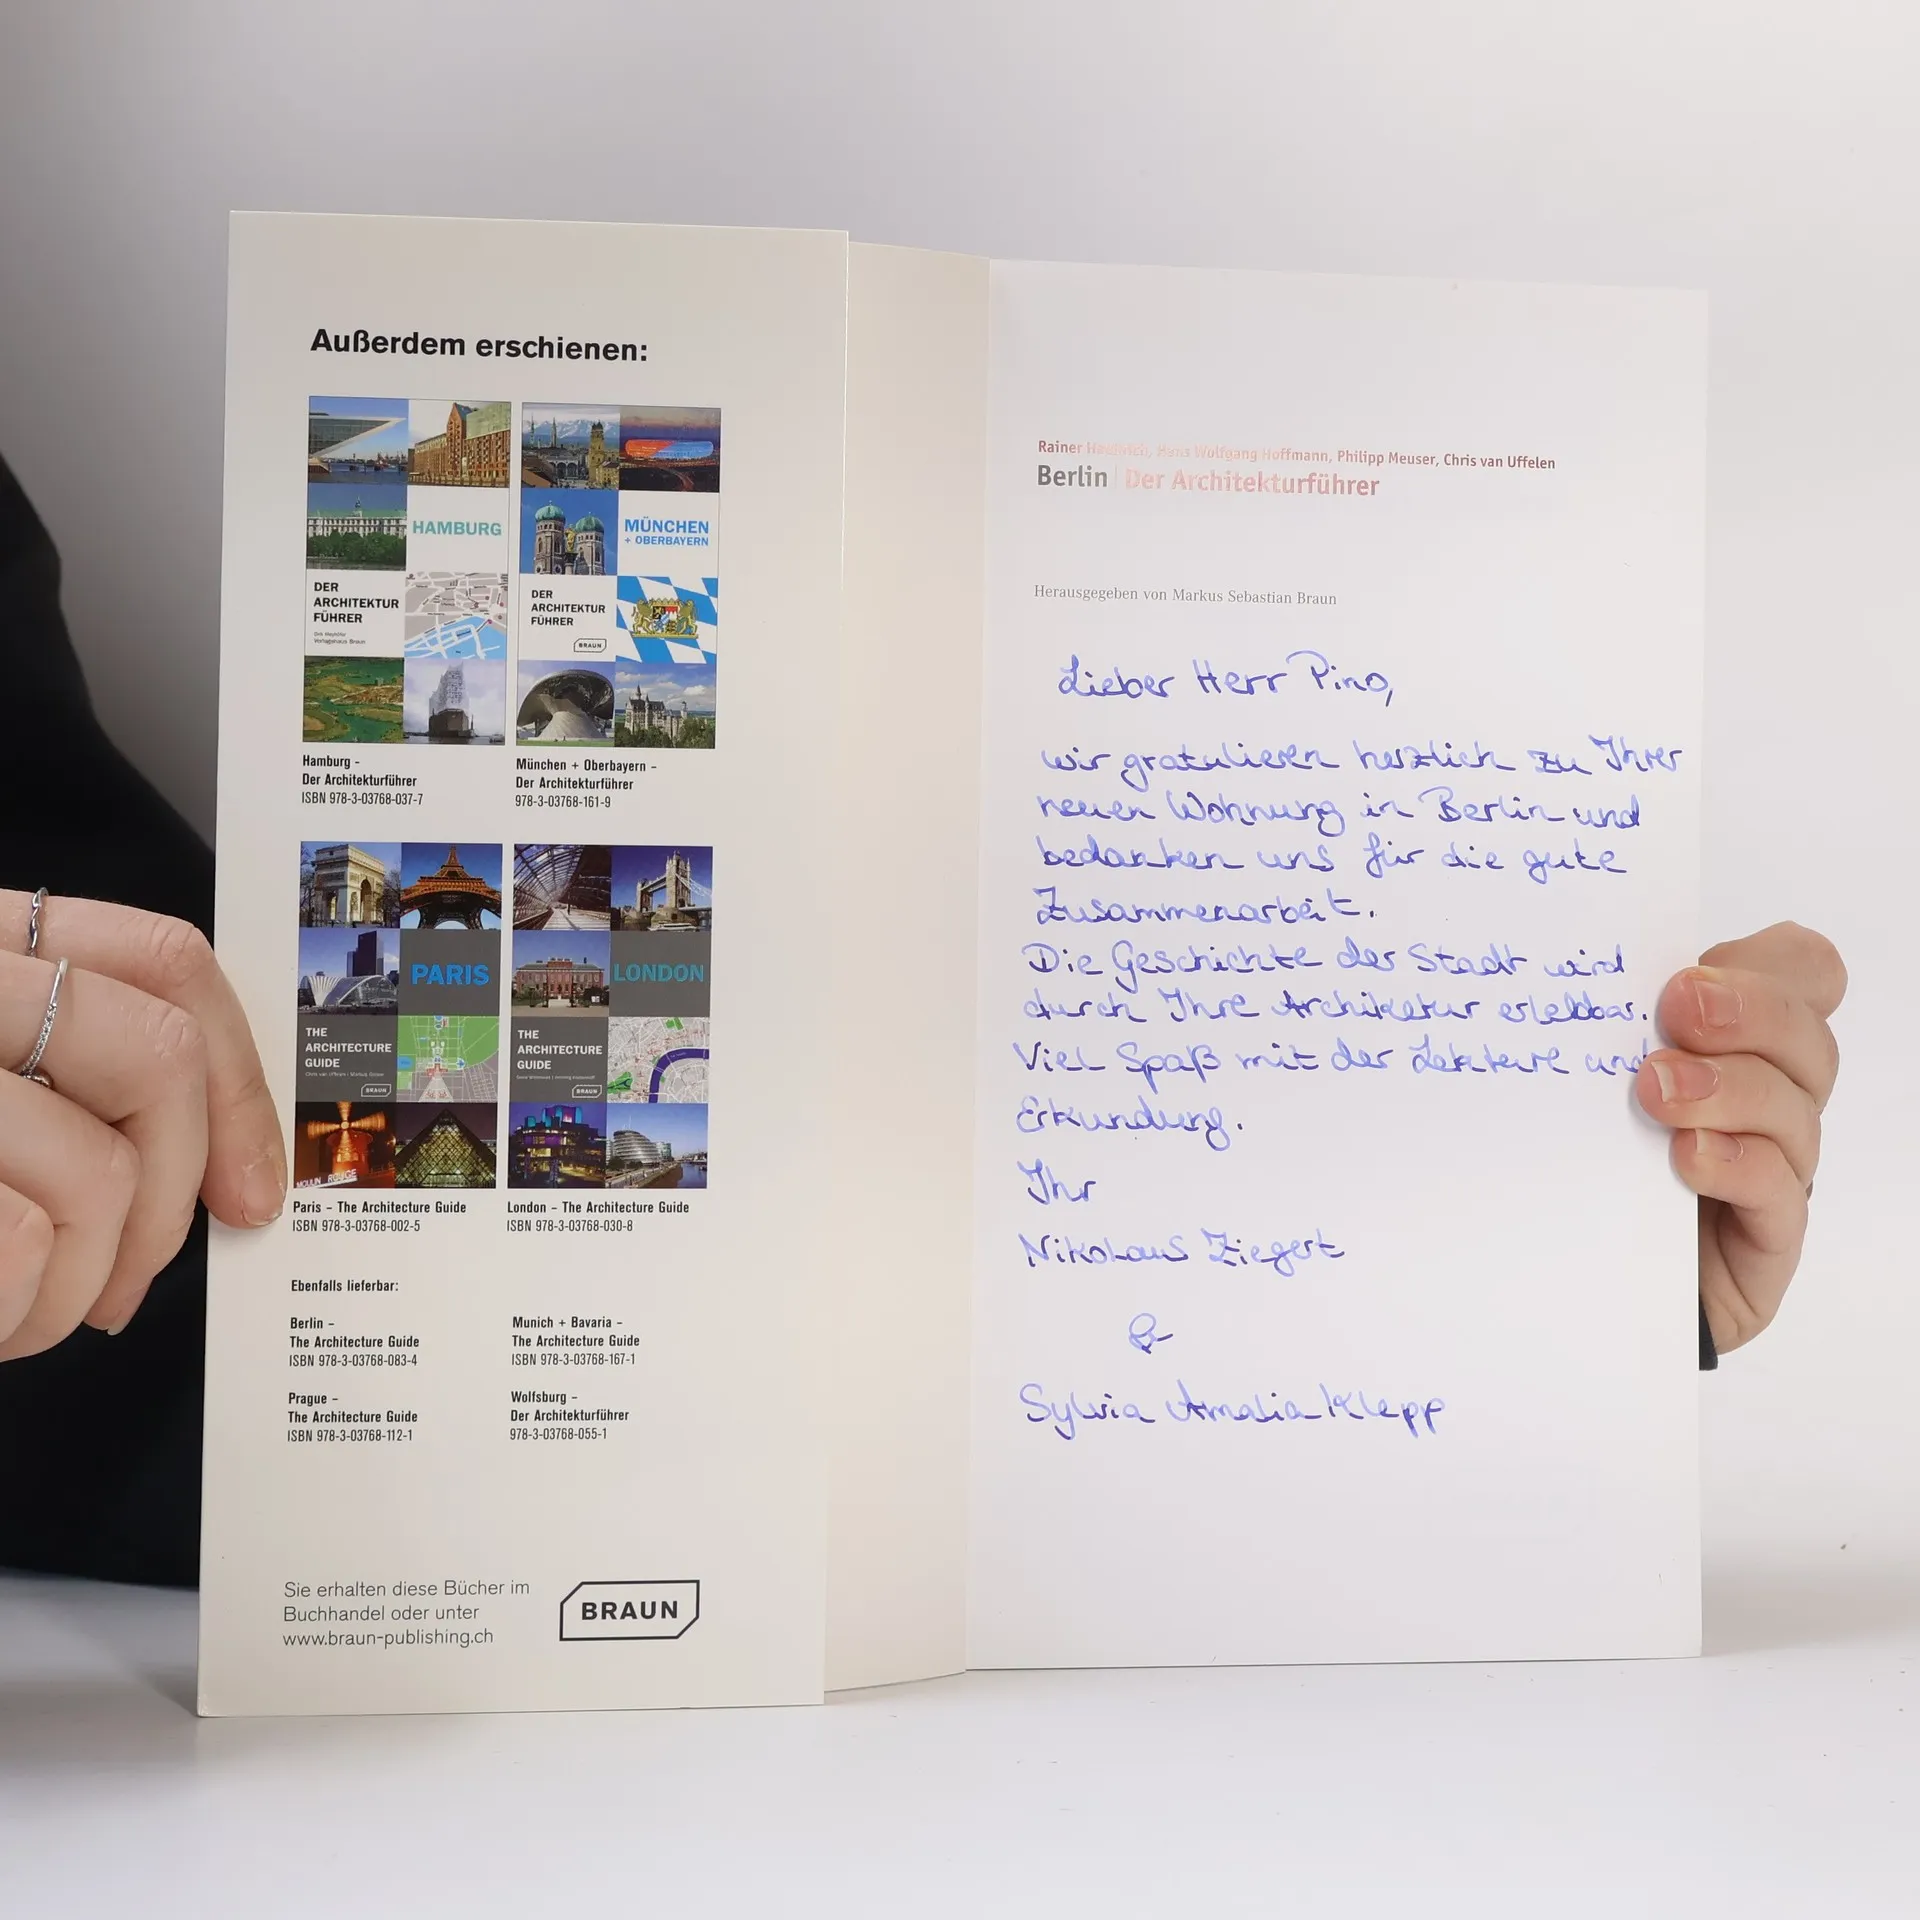 Außerdem erschienen:
HAMBURG
DER
ARCHITEKTUR
FÜHRER
Verlagshaus Braun
MÜNCHEN
+ OBERBAYERN
DER
ARCHITEKTUR
FÜHRER
BRAUN
Hamburg –
Der Architekturführer
ISBN 978-3-03768-037-7
München + Oberbayern –
Der Architekturführer
978-3-03768-161-9
PARIS
THE
ARCHITECTURE
GUIDE
Chris van Uffelen | Markus Golser
BRAUN
MOULIN ROUGE
LONDON
THE
ARCHITECTURE
GUIDE
BRAUN
Paris – The Architecture Guide
ISBN 978-3-03768-002-5
London – The Architecture Guide
ISBN 978-3-03768-030-8
Ebenfalls lieferbar:
Berlin –
The Architecture Guide
ISBN 978-3-03768-083-4
Munich + Bavaria –
The Architecture Guide
ISBN 978-3-03768-167-1
Prague –
The Architecture Guide
ISBN 978-3-03768-112-1
Wolfsburg –
Der Architekturführer
978-3-03768-055-1
Sie erhalten diese Bücher im
Buchhandel oder unter
www.braun-publishing.ch
BRAUN
Rainer Haubrich, Hans Wolfgang Hoffmann, Philipp Meuser, Chris van Uffelen
Berlin | Der Architekturführer
Herausgegeben von Markus Sebastian Braun
Lieber Herr Pino,
wir gratulieren herzlich zu Ihrer
neuen Wohnung in Berlin und
bedanken uns für die gute
Zusammenarbeit.
Die Geschichte der Stadt wird
durch Ihre Architektur erlebbar.
Viel Spaß mit der Lektüre und
Erkundung.
Ihr
Nikolaus Ziegert
&
Sylvia Amalia Klepp